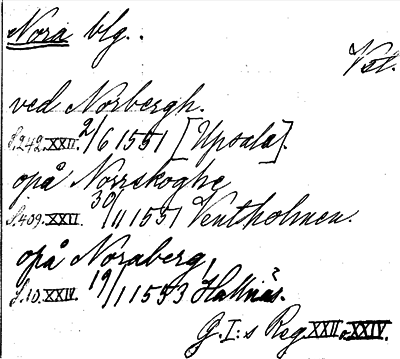 Nora blg.
Vstl.
ved Norbergh.
S.242.XXII. 2/6 1551 [Upsala].
opå Norrskoghe
S.409.XXII. 30/11 1551 Ventholmen.
opå Noraberg,
S.10.XXIV. 19/1 1553 Hallnäs.
G.I:s Reg XXII o. XXIV.